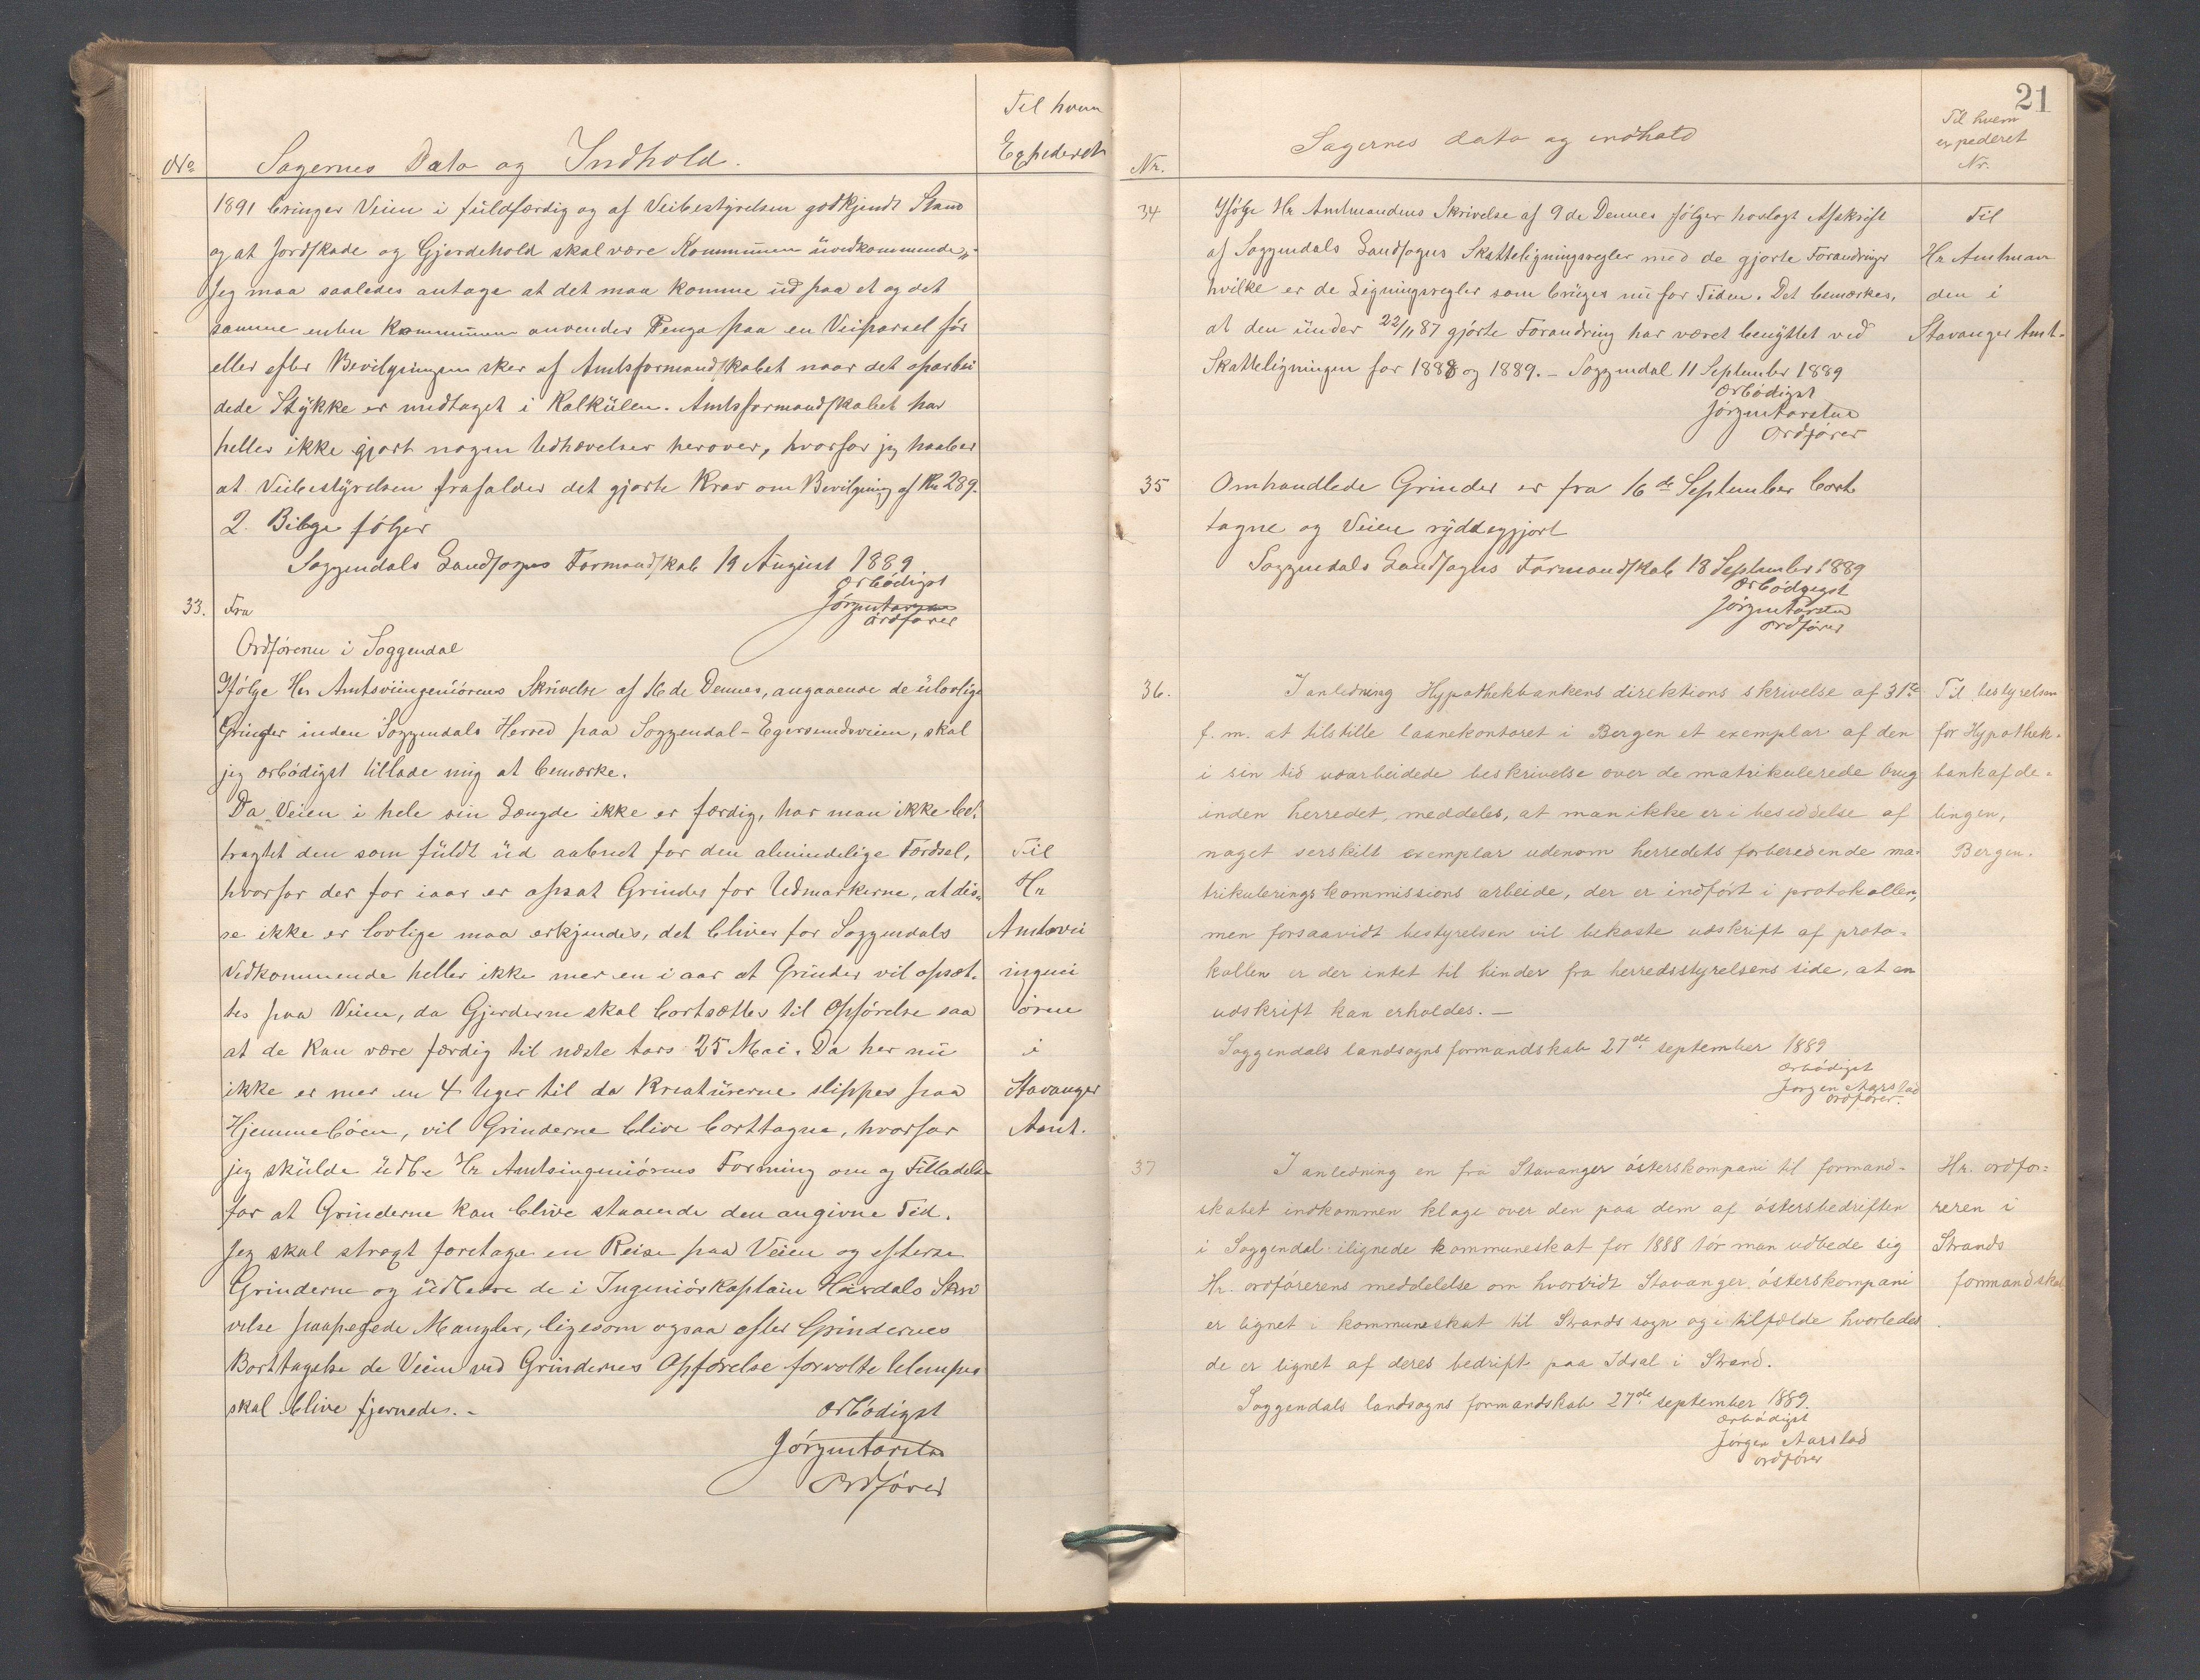 Til hvem
No Sagernes Dato og Indhold. Expederet
1891 bringer Veien i fuldfærdig og af Veibestyrelsen godkjendt Stand
og at Jordskade og Gjerdehold skal være Kommunen uvedkommende„.
Jeg maa saaledes antage at det maa komme ud paa et og det
samme enten Kommunen anvender Penge paa en Veiparsel før
eller efter Bevilgningen sker af Amtsformandskabet naar det oparbei
dede Stykke er medtaget i Kalkülen. Amtsformandskabet har
heller ikke gjort nogen Udhævelser herover, hvorfor jeg haaber
at Veibestyrelsen frafalder det gjorte Krav om Bevilgning af Kr 289.
2 Bilage følger
Soggendals Landsogns Formandskab 19 August 1889
Ærbödigst
Jörgen Aarstad
ordförer
33. Fra
Ordförerne i Soggendal
Ifölge Hr Amtsveiingeniörens Skrivelse af 16 de Dennes, angaaende de ülovlige
Grinder inden Soggendals Herred paa Soggendal-Egersundsveien, skal
jeg ærbödigst tillade mig at bemærke.
Da Veien i hele sin Længde ikke er færdig, har man ikke be-
tragtet den som füldt üd aabnet for den almindelige Færdsel,
hvorfor der for iaar er opsat Grinder for Udmarkerne, at dis-
se ikke er lovlige maa erkjendes, det bliver for Soggendals
Vedkommende heller ikke mer en i aar at Grinder vil opsæt-
tes paa Veien, da Gjerderne skal bortsættes til Opförelse saa
at de kan være færdig til næste Aars 25 Mai. Da her nü
ikke er mer en 4 Uger til da Kreatürerne slippes paa
Hjemmebøen, vil Grinderne blive borttagne, hvorfor
jeg skülde üdbe Hr Amtsingeniörens Formening om og Tilladelse
for at Grinderne kan blive staaende den angivne Tid.
Jeg skal stragt foretage en Reise paa Veien og efterse
Grinderne og üdbedre de i Ingeniörkaptain Hårdals Skri
velse paapegede Mangler, ligesom ogsaa efter Grindernes
Borttagelse de Veien ved Grindernes Opförelse forvolte Ulemper
skal blive fjernedes.-
Ærbödigst
Jörgen Aarstad
Ordförer
Til
Hr
Amtsvei
ingeni
ören
i
Stavanger
Amt.
21
Nr. Sagernes dato og indhold
Til hvem
expederet
Nr.
34 Ifölge Hr Amtmandens Skrivelse af 9 de Dennes fölger hoslagt Afskrift
af Soggendals Landsogns Skatteligningsregler med de gjorte Forandringer
hvilke er de Ligningsregler som brüges nü for Tiden. Det bemærkes,
at den ünder 22/11 87 gjorte Forandring har været benyttet ved
Skatteligningen for 1888 og 1889. - Soggendal 11 September 1889
Ærbödigst
Jörgen Aarstad
Ordförer
Til
Hr Amtman
den i
Stavanger Amt.
35 Omhandlede Grinder er fra 16de September bort
tagne og Veien ryddeggjort
Soggendals Landsogns Formandskab 18 September 1889
Ærbödigst
Jörgen Aarstad
ordförer
36. I anledning Hypothekbankens direktions skrivelse af 31te
f. m. at tilstille laanekontoret i Bergen et exemplar af den
i sin tid udarbeidede beskrivelse over de matrikulerede brug
inden herredet, meddeles, at man ikke er i besiddelse af
noget serskilt exemplar udenom herredets forberedende ma-
trikulerings kommissions arbeide, der er indført i protokollen,
men forsaavidt bestyrelsen vil bekoste udskrift af proto-
kollen er der intet til hinder fra herredsstyrelsens side, at en
udskrift kan erholdes. -
Soggendals landsogns formandskab 27de september 1889
ærbödigst
Jørgen Aarstad
ordfører.
Til bestyrelsen
for Hypothek-
bankafde-
lingen,
Bergen.
37 I anledning en fra Stavanger österskompani til formand-
skabet indkommen klage over den paa dem af östersbedriften
i Soggendal ilignede kommuneskat for 1888 tör man udbede sig
Hr. ordförerens meddelelse om hvorvidt Stavanger österskompani
er lignet i kommuneskat til Strands sogn og i tilfælde hvorledes
de er lignet af deres bedrift paa Idsal i Strand.
Soggendals landsogns formandskab 27de september 1889.
ærbödigst
Jørgen Aarstad
ordförer
Hr. ordfö-
reren i
Strands
formandskab